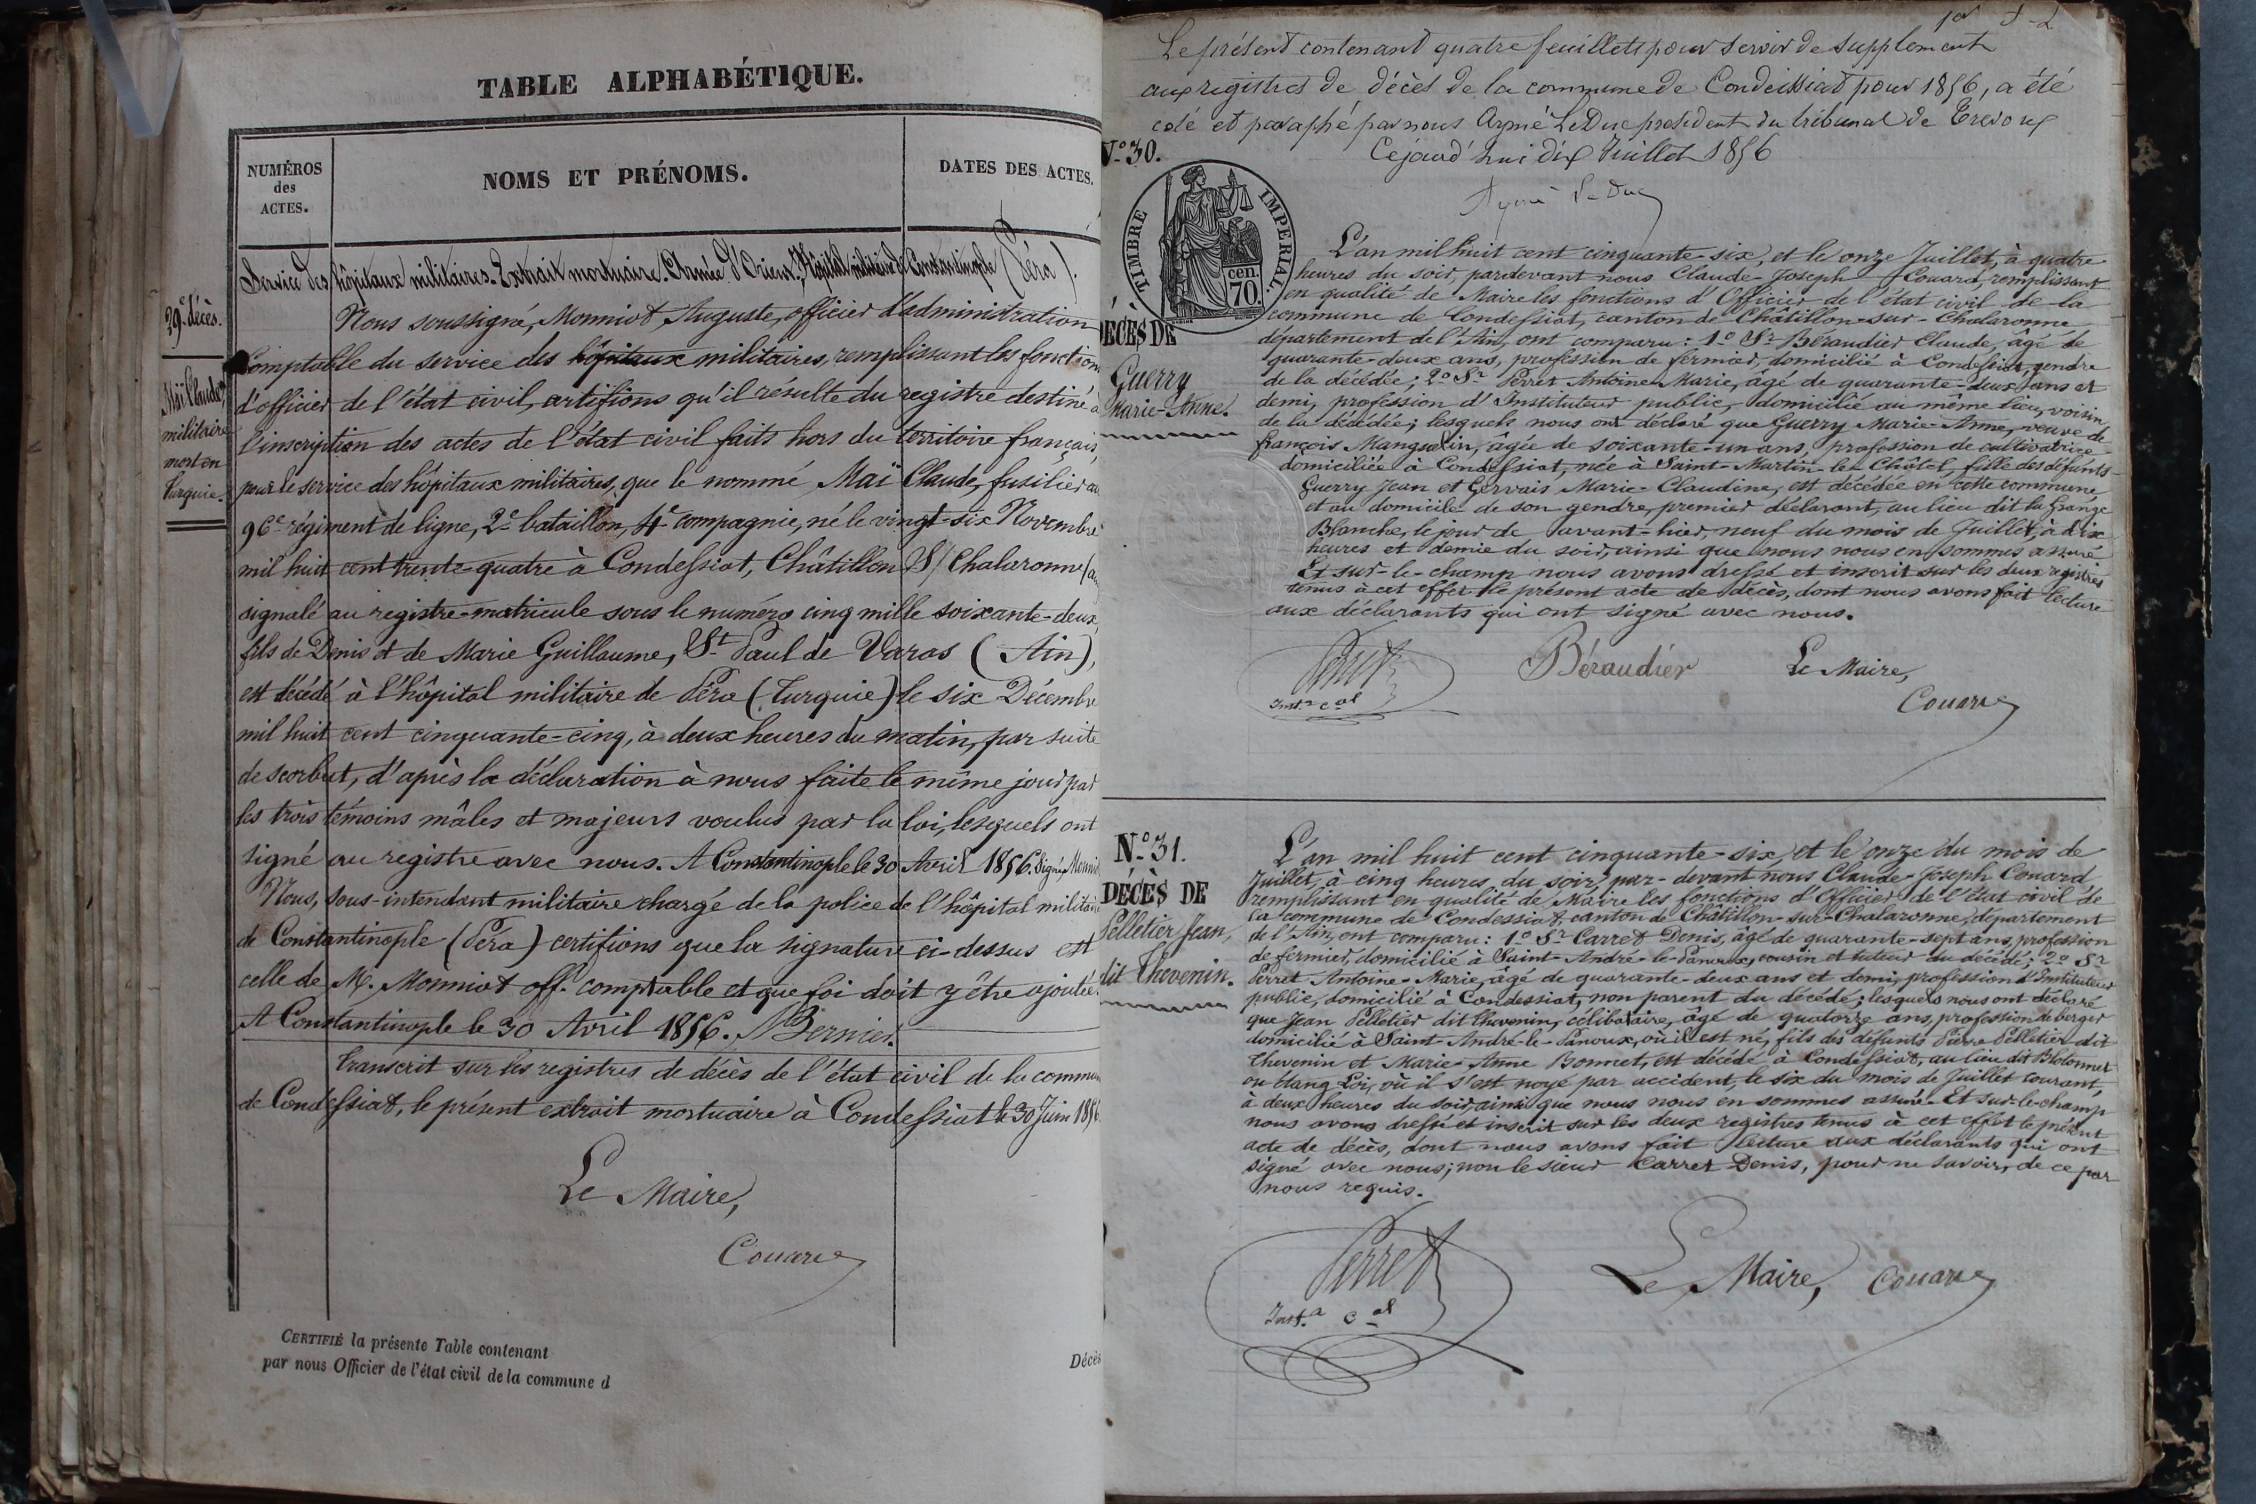 TABLE ALPHABÉTIQUE.
NUMÉROS
des
ACTES.
NOMS ET PRÉNOMS.
DATES DES ACTES.
29e décès.
Maï Claude,
militaire
mort en
Turquie.
Service des hôpitaux militaires. Extrait mortuaire. Armée d'Orient. Hôpital militaire de Constantinople (Péra).
Nous soussigné, Monniot Auguste, officier d'administration
comptable du service des hôpitaux militaires, remplissant les fonction
d'officier de l'état civil, certifions qu'il résulte du registre destiné à
l'inscription des actes de l'état civil faits hors du territoire français,
pour le service des hôpitaux militaires, que le nommé Maï Claude, fusilier au
96e régiment de ligne, 2e bataillon, 4e compagnie, né le vingt-six Novembre
mil huit cent trente-quatre à Condessiat, Châtillon S/ Chalaronne (
signalé au registre-matricule sous le numéro cinq mille soixante-deux,
fils de Denis et de Marie Guillaume, St Paul de Varas (Ain),
est décédé à l'hôpital militaire de Péra (Turquie) le six Décembre
mil huit cent cinquante-cinq, à deux heures du matin, par suite
de scorbut, d'après la déclaration à nous faite le même jour par
les trois témoins mâles et majeurs voulus par la loi, lesquels ont
signé au registre avec nous. A Constantinople le 30 Avril 1856. Signé, Monni
Nous, sous-intendant militaire chargé de la police de l'hôpital militaire
de Constantinople (Péra) certifions que la signature ci-dessus est
celle de M. Monniot off. comptable et que foi doit y être ajoutée.
A Constantinople le 30 Avril 1856. Bernier.
Transcrit sur les registres de décès de l'état civil de la commun
de Condessiat, le présent extrait mortuaire à Condessiat le 30 Juin 1856
Le Maire,
Couard
CERTIFIÉ la présente Table contenant
par nous Officier de l'état civil de la commune d
Décès
1er
Le présent contenant quatre feuillets pour servir de supplement
aux registres de décès de la commune de Condeissiat pour 1856, a été
coté et paraphé par nous Aymé LeDuc president du tribunal de Trevoux
Cejourd'hui dix Juillet 1856
Aymé LeDuc
No 30.
TIMBRE IMPÉRIAL.
cen.
70.
DÉCÈS DE
Guerry
Marie-Anne.
L'an mil huit cent cinquante-six, et le onze Juillet, à quatre
heures du soir, pardevant nous Claude-Joseph Couard, remplissant
en qualité de Maire les fonctions d'Officier de l'état civil de la
commune de Condessiat, canton de Châtillon-sur-Chalaronne
département de l'Ain, ont comparu: 1o Sr Béraudier Claude, âgé de
quarante-deux ans, profession de fermier, domicilié à Condessiat, gendre
de la décédée; 2o Sr Perret Antoine-Marie, âgé de quarante-deux ans et
demi, profession d'Instituteur public, domicilié au même lieu, voisin
de la décédée; lesquels nous ont déclaré que Guerry Marie-Anne, veuve de
françois Manguelin, âgée de soixante-un ans, profession de cultivatrice
domiciliée à Condessiat, née à Saint-Martin-le-Châtel, fille des défunts
Guerry Jean et Gervais Marie-Claudine, est décédée en cette commune
et au domicile de son gendre, premier déclarant, au lieu dit la Grange
Blanche, le jour de avant-hier, neuf du mois de Juillet, à dix
heures et demie du soir, ainsi que nous nous en sommes assuré
Et sur-le-champ nous avons dressé et inscrit sur les deux registres
tenus à cet effet le présent acte de décès, dont nous avons fait lecture
aux déclarants qui ont signé avec nous.
Perret
Béraudier
Le Maire,
Couard
No 31.
DÉCÈS DE
Pelletier Jean,
dit Thevenin.
L'an mil huit cent cinquante-six, et le onze du mois de
Juillet, à cinq heures du soir, par-devant nous Claude-Joseph Couard
remplissant en qualité de Maire les fonctions d'Officier de l'état civil de
la commune de Condessiat, canton de Châtillon-sur-Chalaronne, département
de l'Ain, ont comparu: 1o Sr Carret Denis, âgé de quarante-sept ans, profession
de fermier, domicilié à Saint-André-le-Panoux, cousin et tuteur du décédé; 2o Sr
Perret Antoine-Marie, âgé de quarante-deux ans et demi, profession d'Instituteur
public, domicilié à Condessiat, non parent du décédé; lesquels nous ont déclaré
que Jean Pelletier dit Thevenin, célibataire, âgé de quatorze ans, profession de berger
domicilié à Saint-André-le-Panoux, où il est né, fils des défunts Pierre Pelletier dit
Thevenin et Marie-Anne Bonnet, est décédé à Condessiat, au lieu dit
ou étang Loi, où il s'est noyé par accident, le six du mois de Juillet courant,
à deux heures du soir, ainsi que nous nous en sommes assuré. Et sur-le-champ
nous avons dressé et inscrit sur les deux registres tenus à cet effet le présent
acte de décès, dont nous avons fait lecture aux déclarants qui ont
signé avec nous; non le sieur Carret Denis, pour ne savoir, de ce par
nous requis.
Perret
Le Maire, Couard